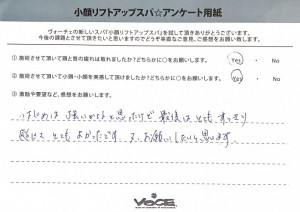 小顔リフトアップスパ☆アンケート用紙
ヴォーチェの新しいスパ「小顔リフトアップスパ」を試して頂きありがとうございます。
今後の課題とさせて頂きたいと思いますのでどうぞ率直なご意見、ご感想をお願い致します。
① 施術させて頂いて頭と首の疲れは取れましたか？どちらかに○をお願いします。 Yes ・ No
② 施術させて頂いて小顔・小顔を実感して頂けましたか？どちらかに○をお願いします。 Yes ・ No
③ 激励や要望など、感想をお願いします。
はじめは 強いかなと思ったけど 最後は とても すっきり
とても よかったです。又、お願いしたいと思います。
VOCE